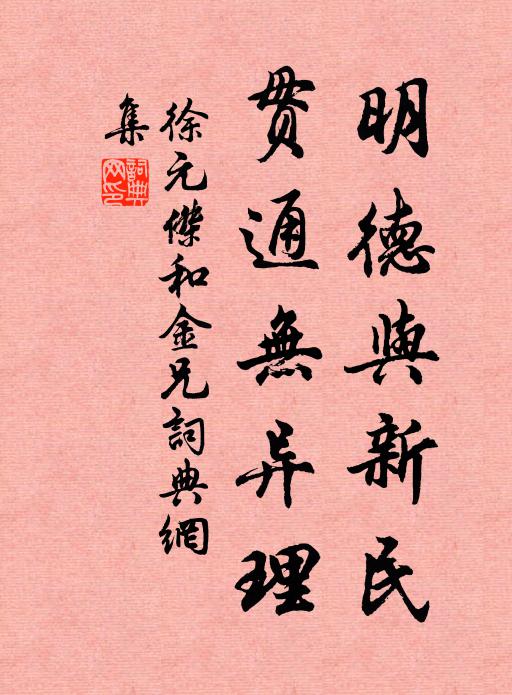 明德與新民
贯通無异理
徐元傑和金兄詞典網
集
詞典網印